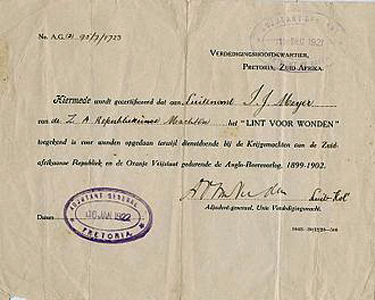 No. A.G.
ADJUTANT GENERAL
VERDEDIGINGSHOOFDKWARTIER,
PRETORIA, ZUID AFRIKA.
Hiermede wordt gecertificeerd dat aan Luitenant J. J. Meyer
van de Z. A. Republikeinse Machten het "LINT VOOR WONDEN"
toegekend is voor wonden opgedaan terwijl dienstdoende bij de Krijgsmachten van de Zuid-
afrikaanse Republiek en de Oranje Vrijstaat gedurende de Anglo-Boerenoorlog, 1899-1902.
Luit. Kol.
Adjudant-generaal, Unie Verdedigingsmacht.
Datum
ADJUTANT GENERAL
10 JAN 1922
PRETORIA